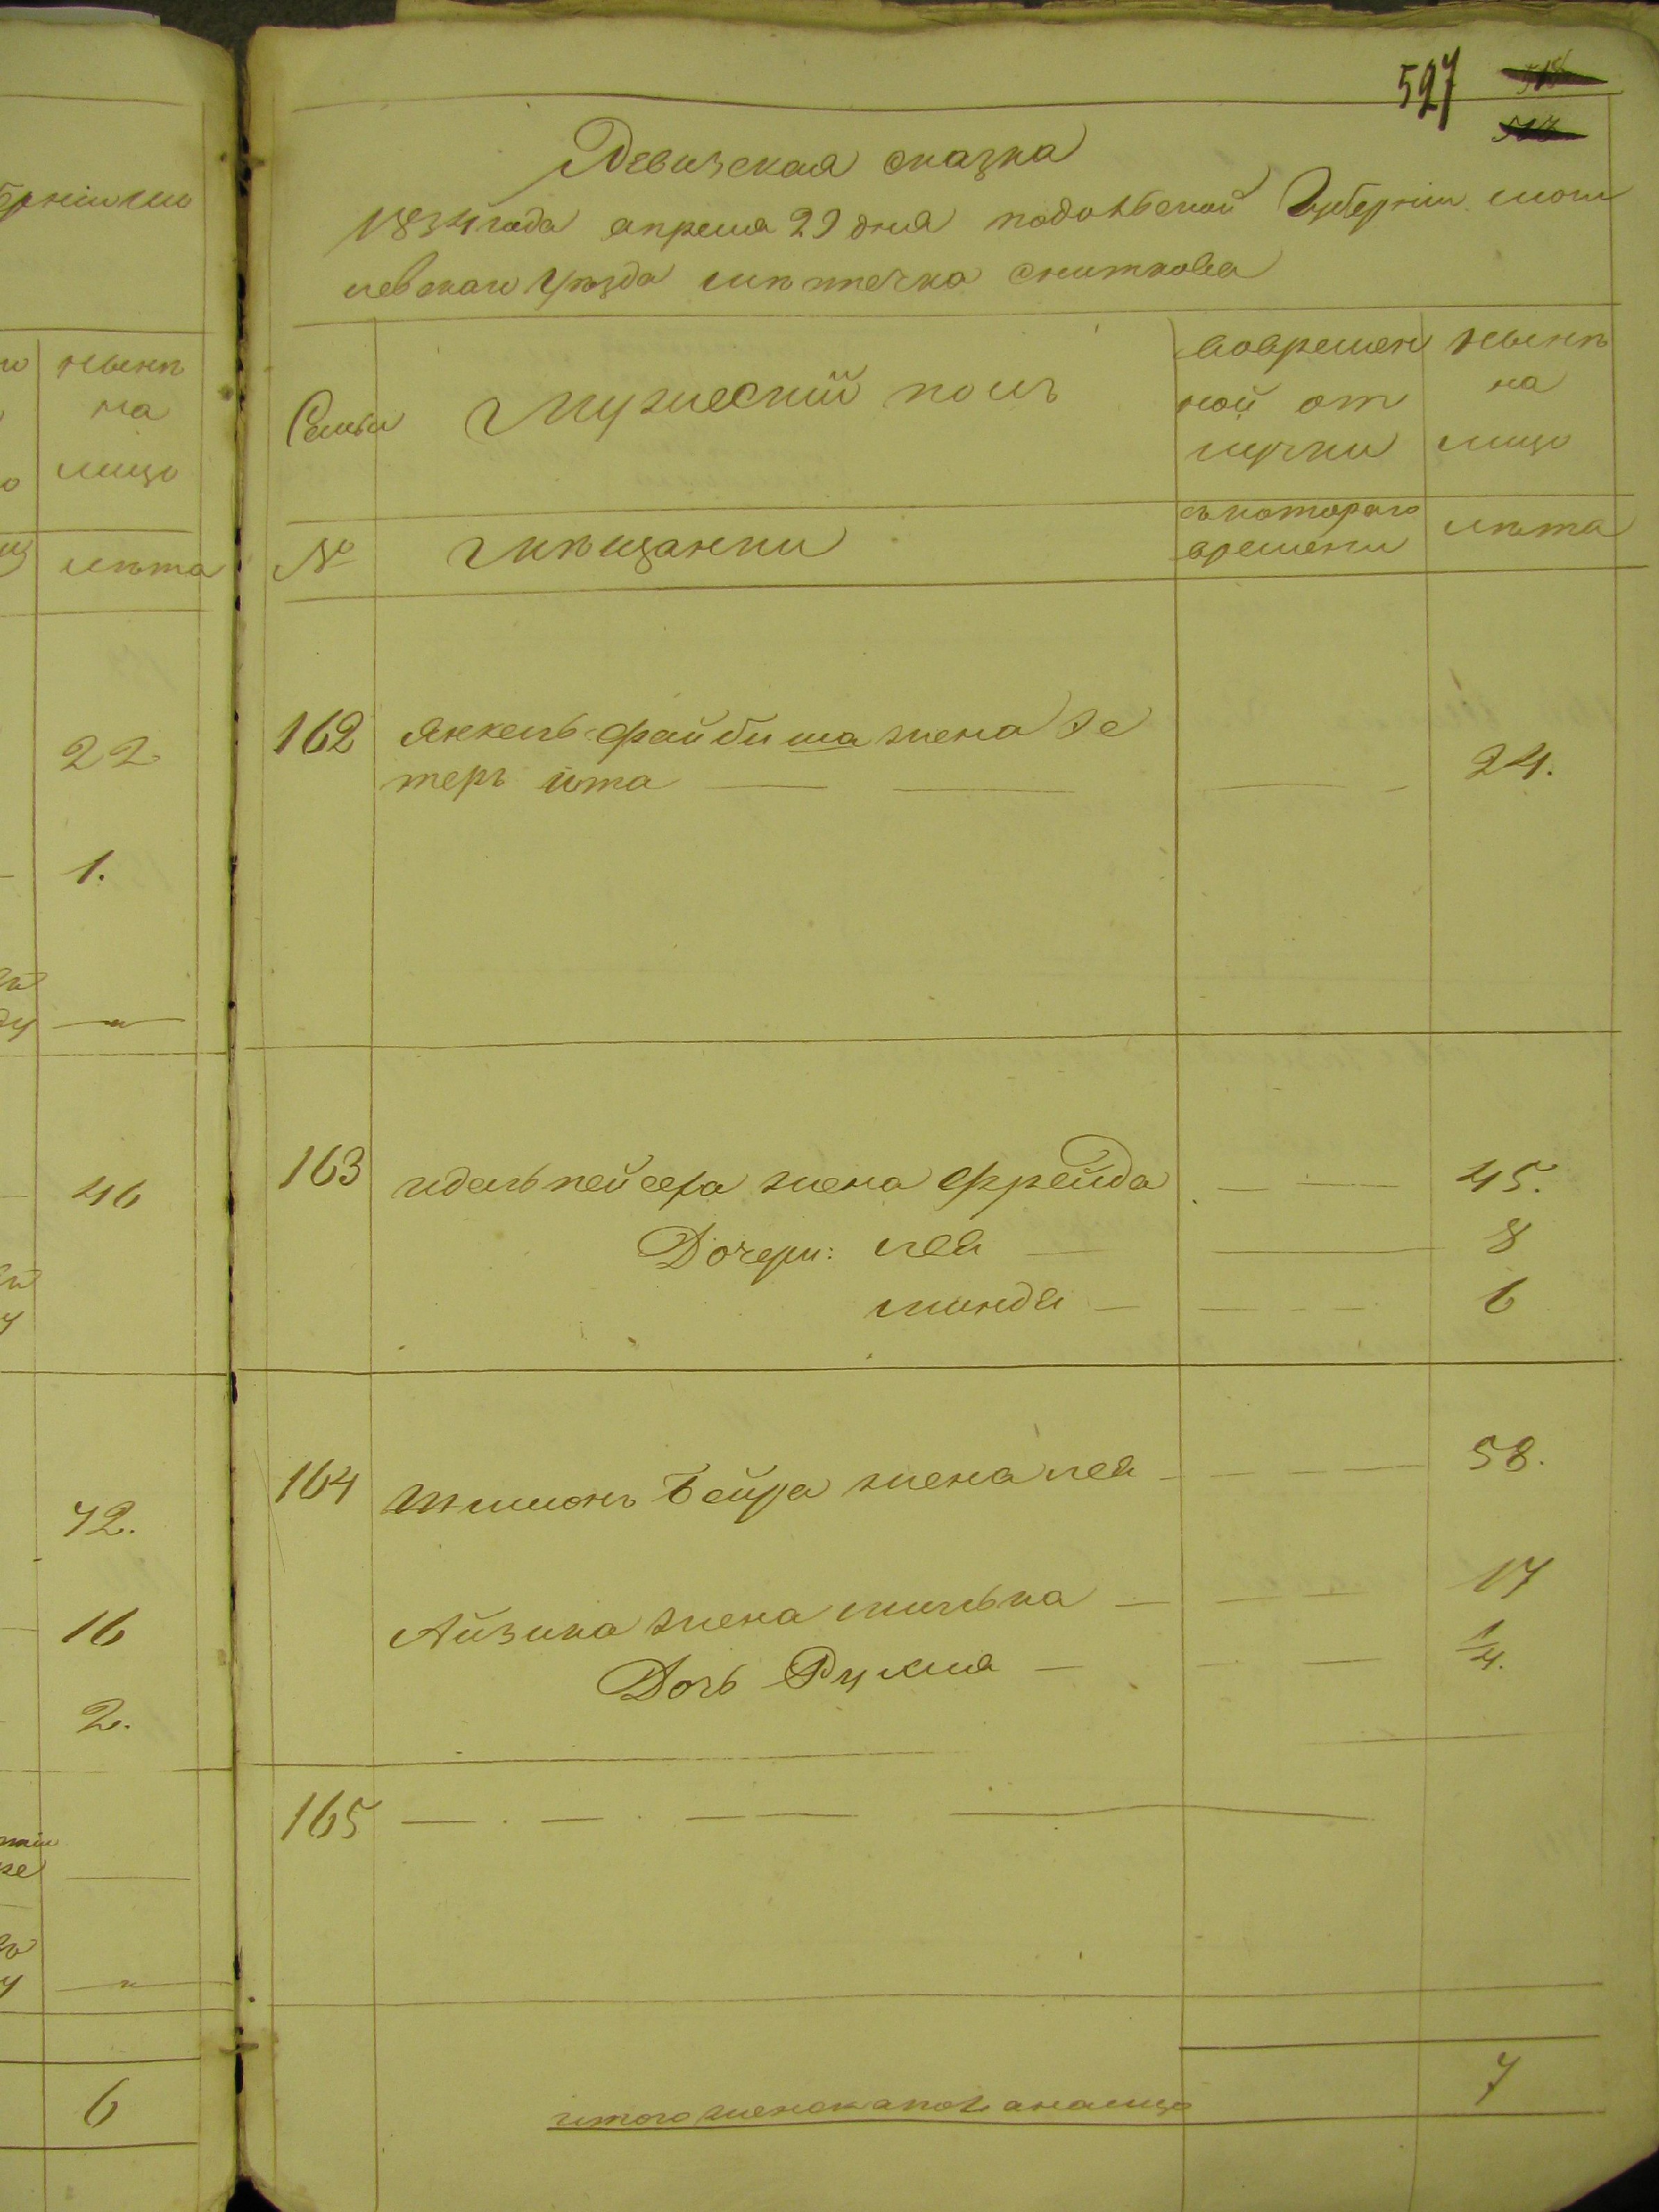 527
Ревизская сказка
1834 года апреля 29 дня подольской Губернии моги
левскаго Уѣзда мѣстечка сниткова
Семьи
Мужеский полъ
вовремен
ной от
лучки
нынѣ
на
лицо
№
мѣщанки
съ котораго
времени
лѣта
162 Янкель файбиша жена Эс
теръ ита — — — 24.
163 идель пейсера жена Фрейда — — 45.
Дочери: лея — — 8
минде — — 6
164 Шмионъ Бейра жена лея — — 58.
Айзика жена милька — — 17
Дочь Рухля — — 1/4.
165 — — — —
итого женска пола налицо 7
нынѣ
на
лицо
лѣта
22
1.
46
72.
16
2.
6